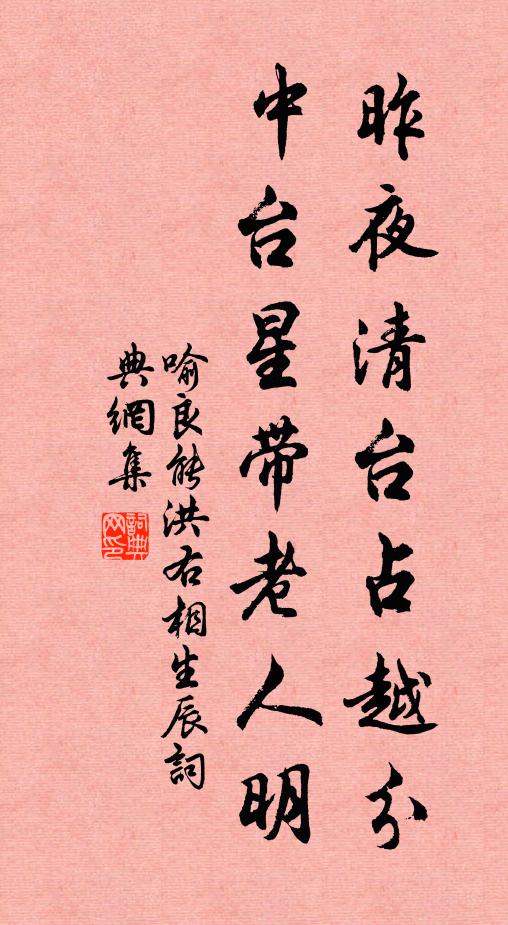 昨夜清台占越分
中台星带老人明
喻良能洪右相生辰詞
典網集
詞典
网印